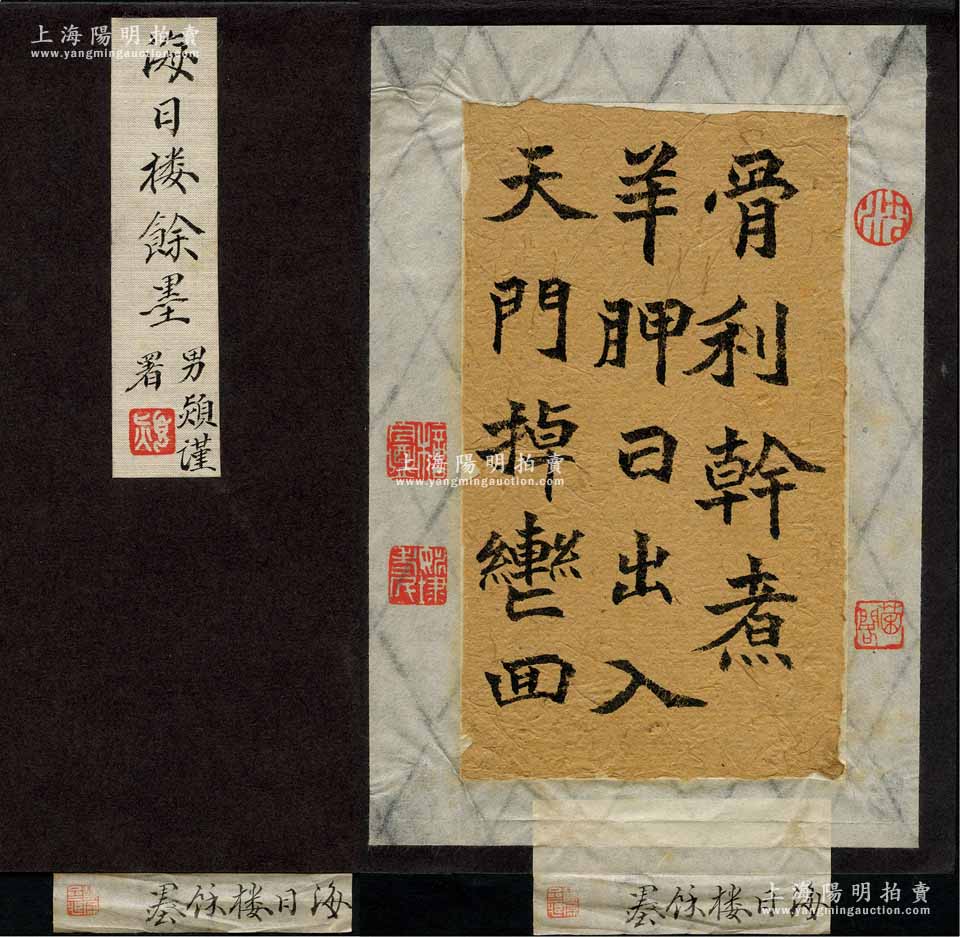 上海陽明拍賣
www.yangmingauction.com
海日楼餘墨
男熲謹
署
骨利幹煮
羊胛日出入
天門掉轡囬
上海陽明拍賣
www.yangmingauction.com
海日楼馀墨
海日楼馀墨
上海陽明拍賣
www.yangmingauction.com